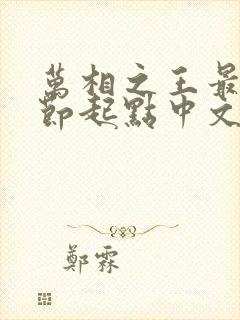 萬相之王最
節起點中文
鄭霖